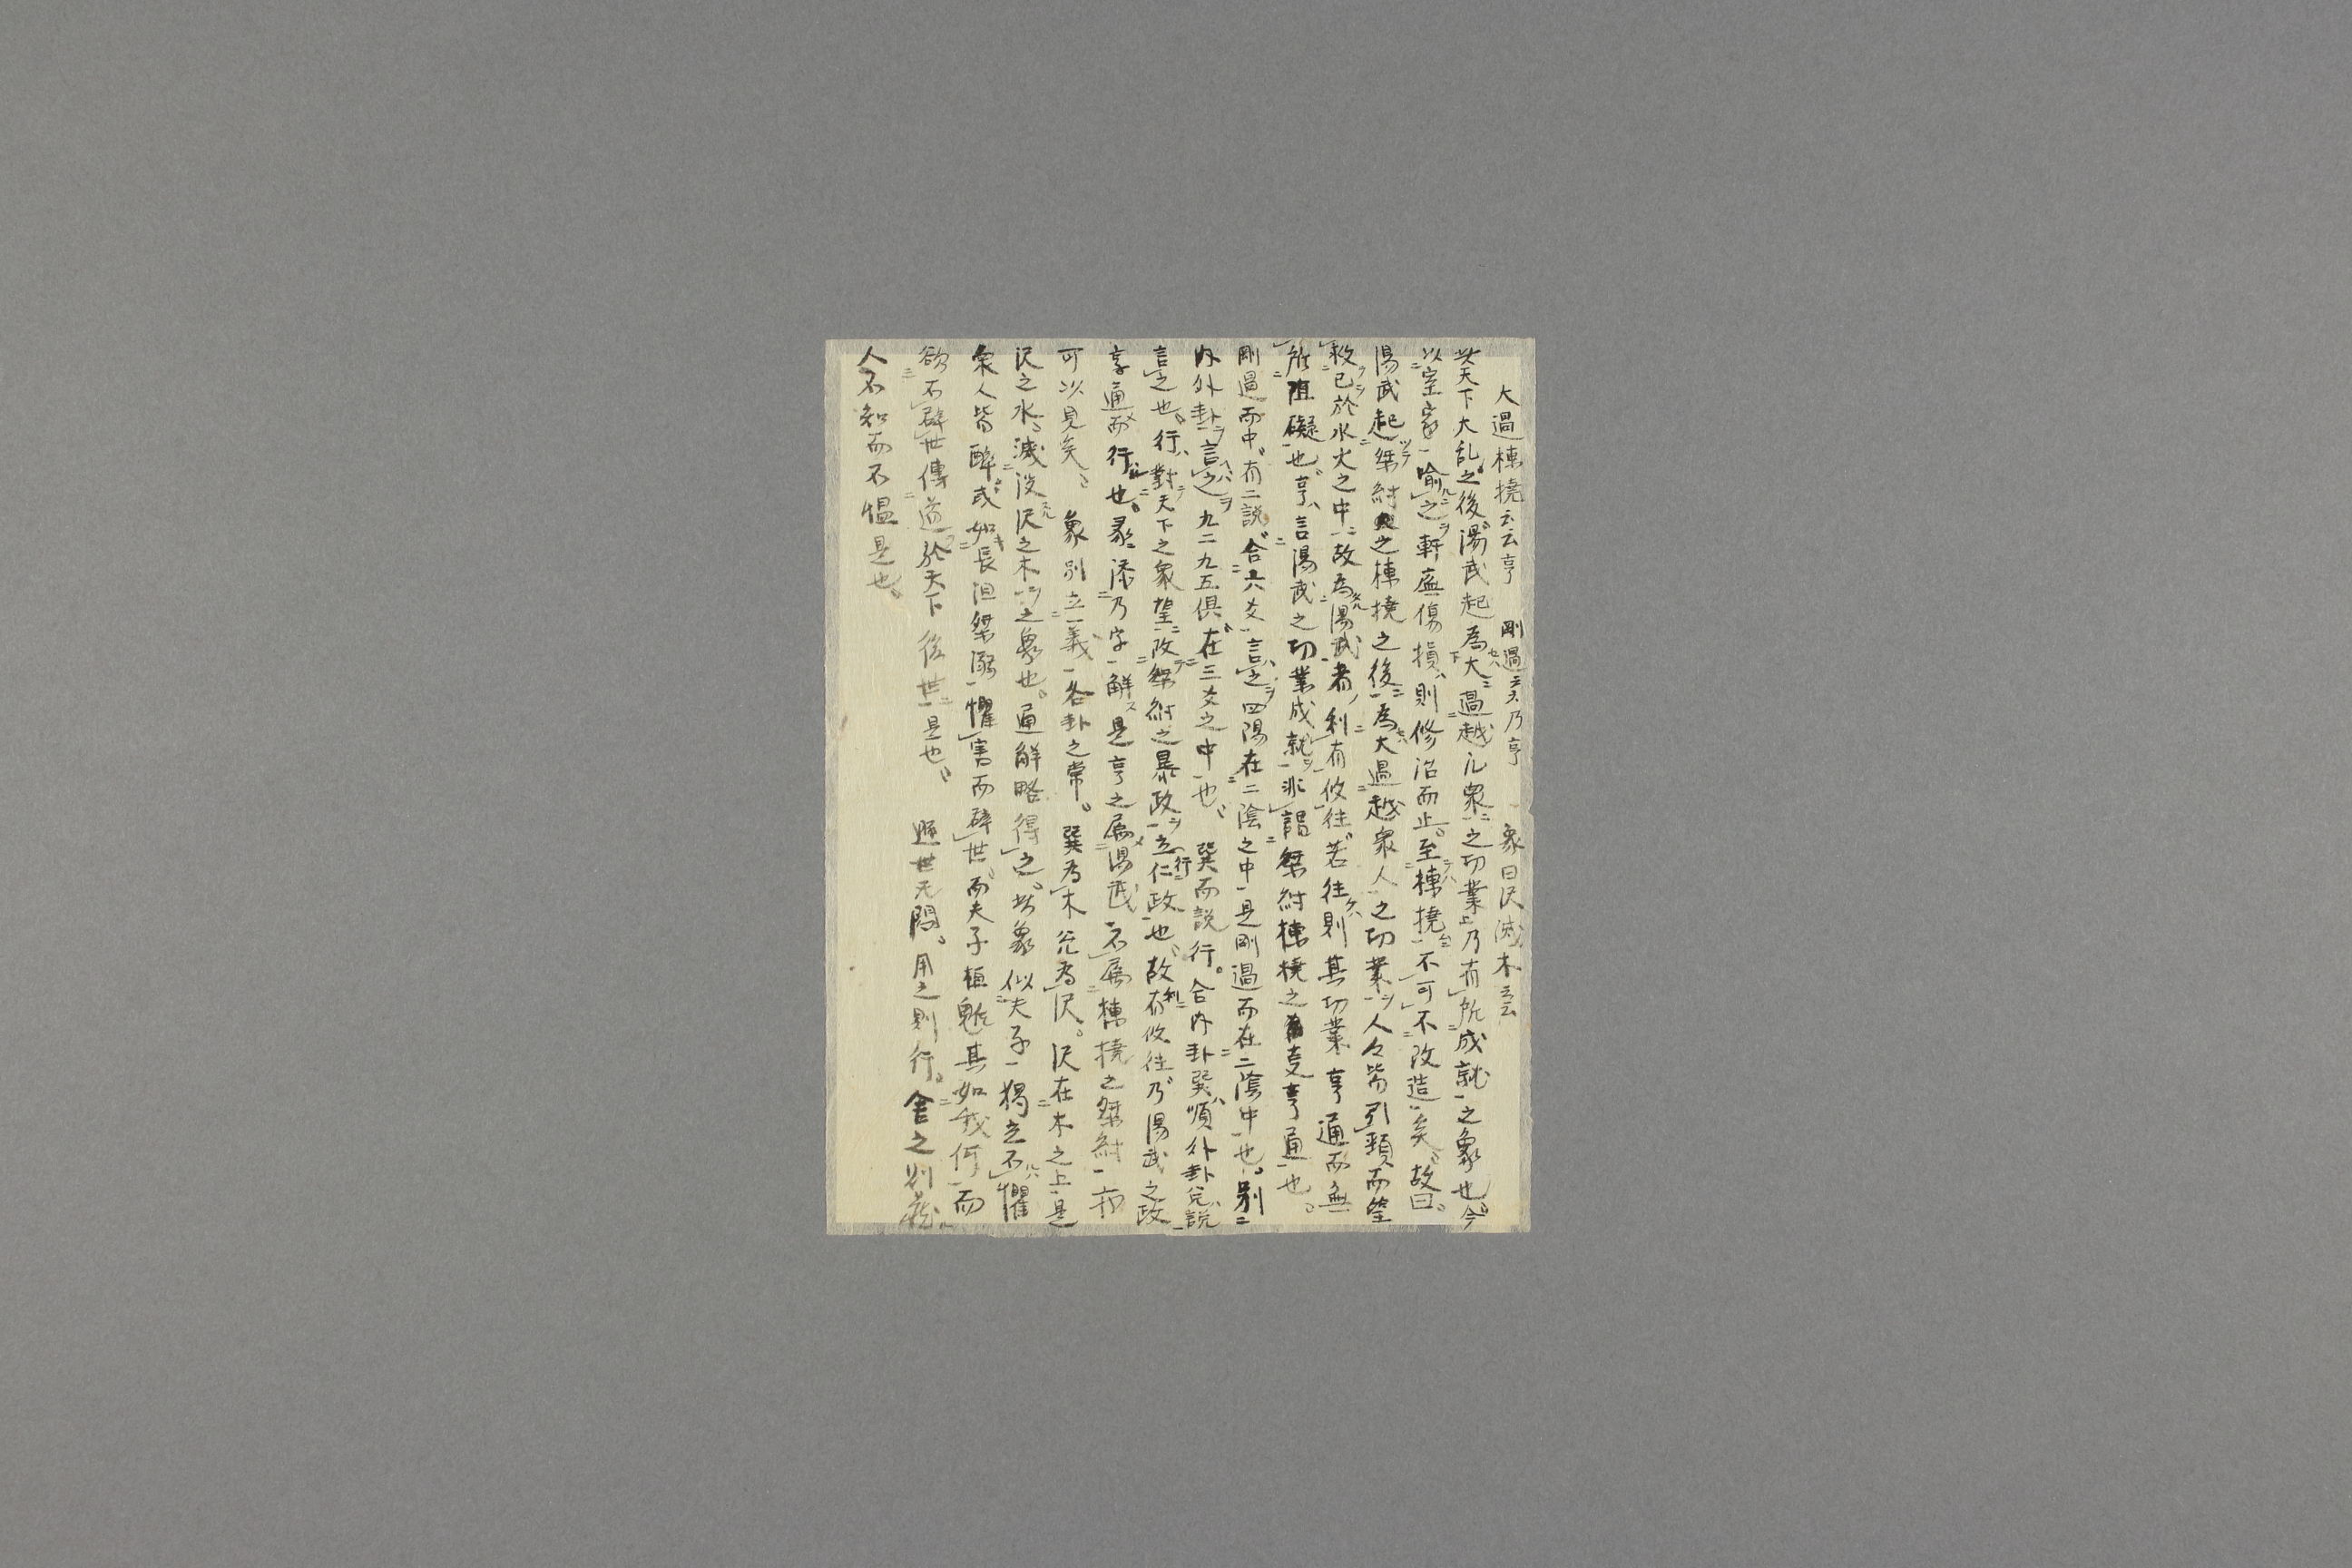 大過棟撓云云亨　剛過云云乃亨　象曰沢滅木云云
此天下大乱之後湯武起為大過越凡衆之功業乃有所成就之象也今
以室家喻之軒廡傷損則修治而止至棟撓不可不改造矣故曰
湯武起桀紂之棟撓之後為大過越衆人之功業人々皆引頸而望
救已於水火之中故為湯武者利有攸往若往則其功業亨通而無
所阻礙也亨言湯武之功業成就非謂桀紂棟撓之変亨通也
剛過而中有二説合六爻言之四陽在二陰之中是剛過而在二陰中也別
内外卦言之九二九五俱在三爻之中也　巽而説行合内卦巽順外卦兌説
言之也行対天下之衆望改桀紂之暴政立行仁政也故利有攸往乃湯武之政
享通而行也彖添乃字解是亨之属湯武不属棟撓之桀紂亦
可以見矣　象別立一義各卦之常巽為木兌為沢沢在木之上是
沢之水滅没沢之木之象也通解略得之此象似夫子独立不懼
衆人皆酔或如長沮桀溺懼害而辟世而夫子桓魋其如我何而
欲不辟世傳道於天下後世是也　遯世无悶用之則行舍之則蔵
人不知而不慍是也